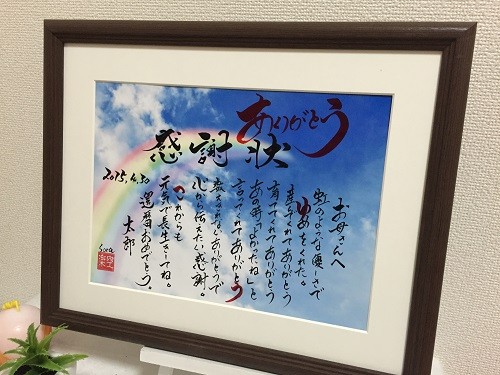 ありがとう
感謝状
お母さんへ
虹のような美しさで
ゆめをくれた。
産んでくれてありがとう
育ててくれてありがとう
あの時「よかったね」と
言ってくれてありがとう
数えきれないありがとうで
心から伝えたい感謝。
これからも
元気で長生きしてね。
還暦おめでとう。
太郎
2015.4.30
Sora